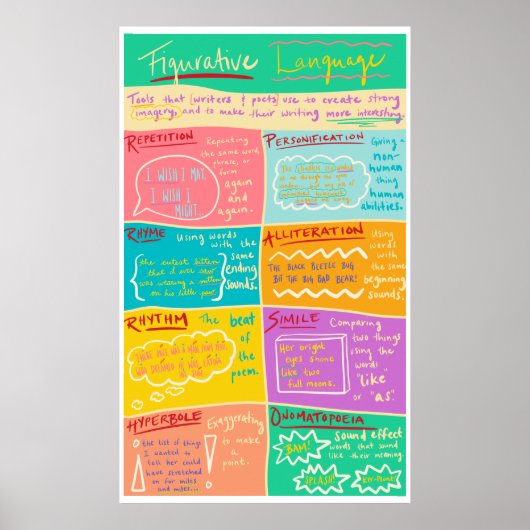 Figurative Language
Tools that [writers & poets] use to create strong
imagery, and to make their writing more interesting.
REPETITION
Repeating
the same word,
phrase, or
form
again
and
again.
I WISH I MAY,
I WISH I
MIGHT...
PERSONIFICATION
Giving
a
non-
human
thing
human
abilities.
The
at me through the open
window... but my pile of
homework
RHYME
Using words
with the
same
ending
sounds.
the cutest kitten
that I ever saw
was wearing a mitten
on his little paw
ALLITERATION
Using
words
with
the same
beginning
sounds.
THE BLACK BEETLE BUG
BIT THE BIG BAD BEAR!
RHYTHM
The beat
of
the
poem.
THERE ONCE WAS A MAN FROM PERU
WHO DREAMED HE WAS EATING
HIS SHOE
SIMILE
Comparing
two things
using the
words
"like"
or "as".
Her bright
eyes shone
like two
full moons.
HYPERBOLE
Exaggerating
to make
a
point.
the list of things
I wanted to
tell her could
have stretched
on for miles
and miles...
ONOMATOPOEIA
sound effect
words that sound
like their meaning.
BAM!
SPLASH!
KER-PLUNK!